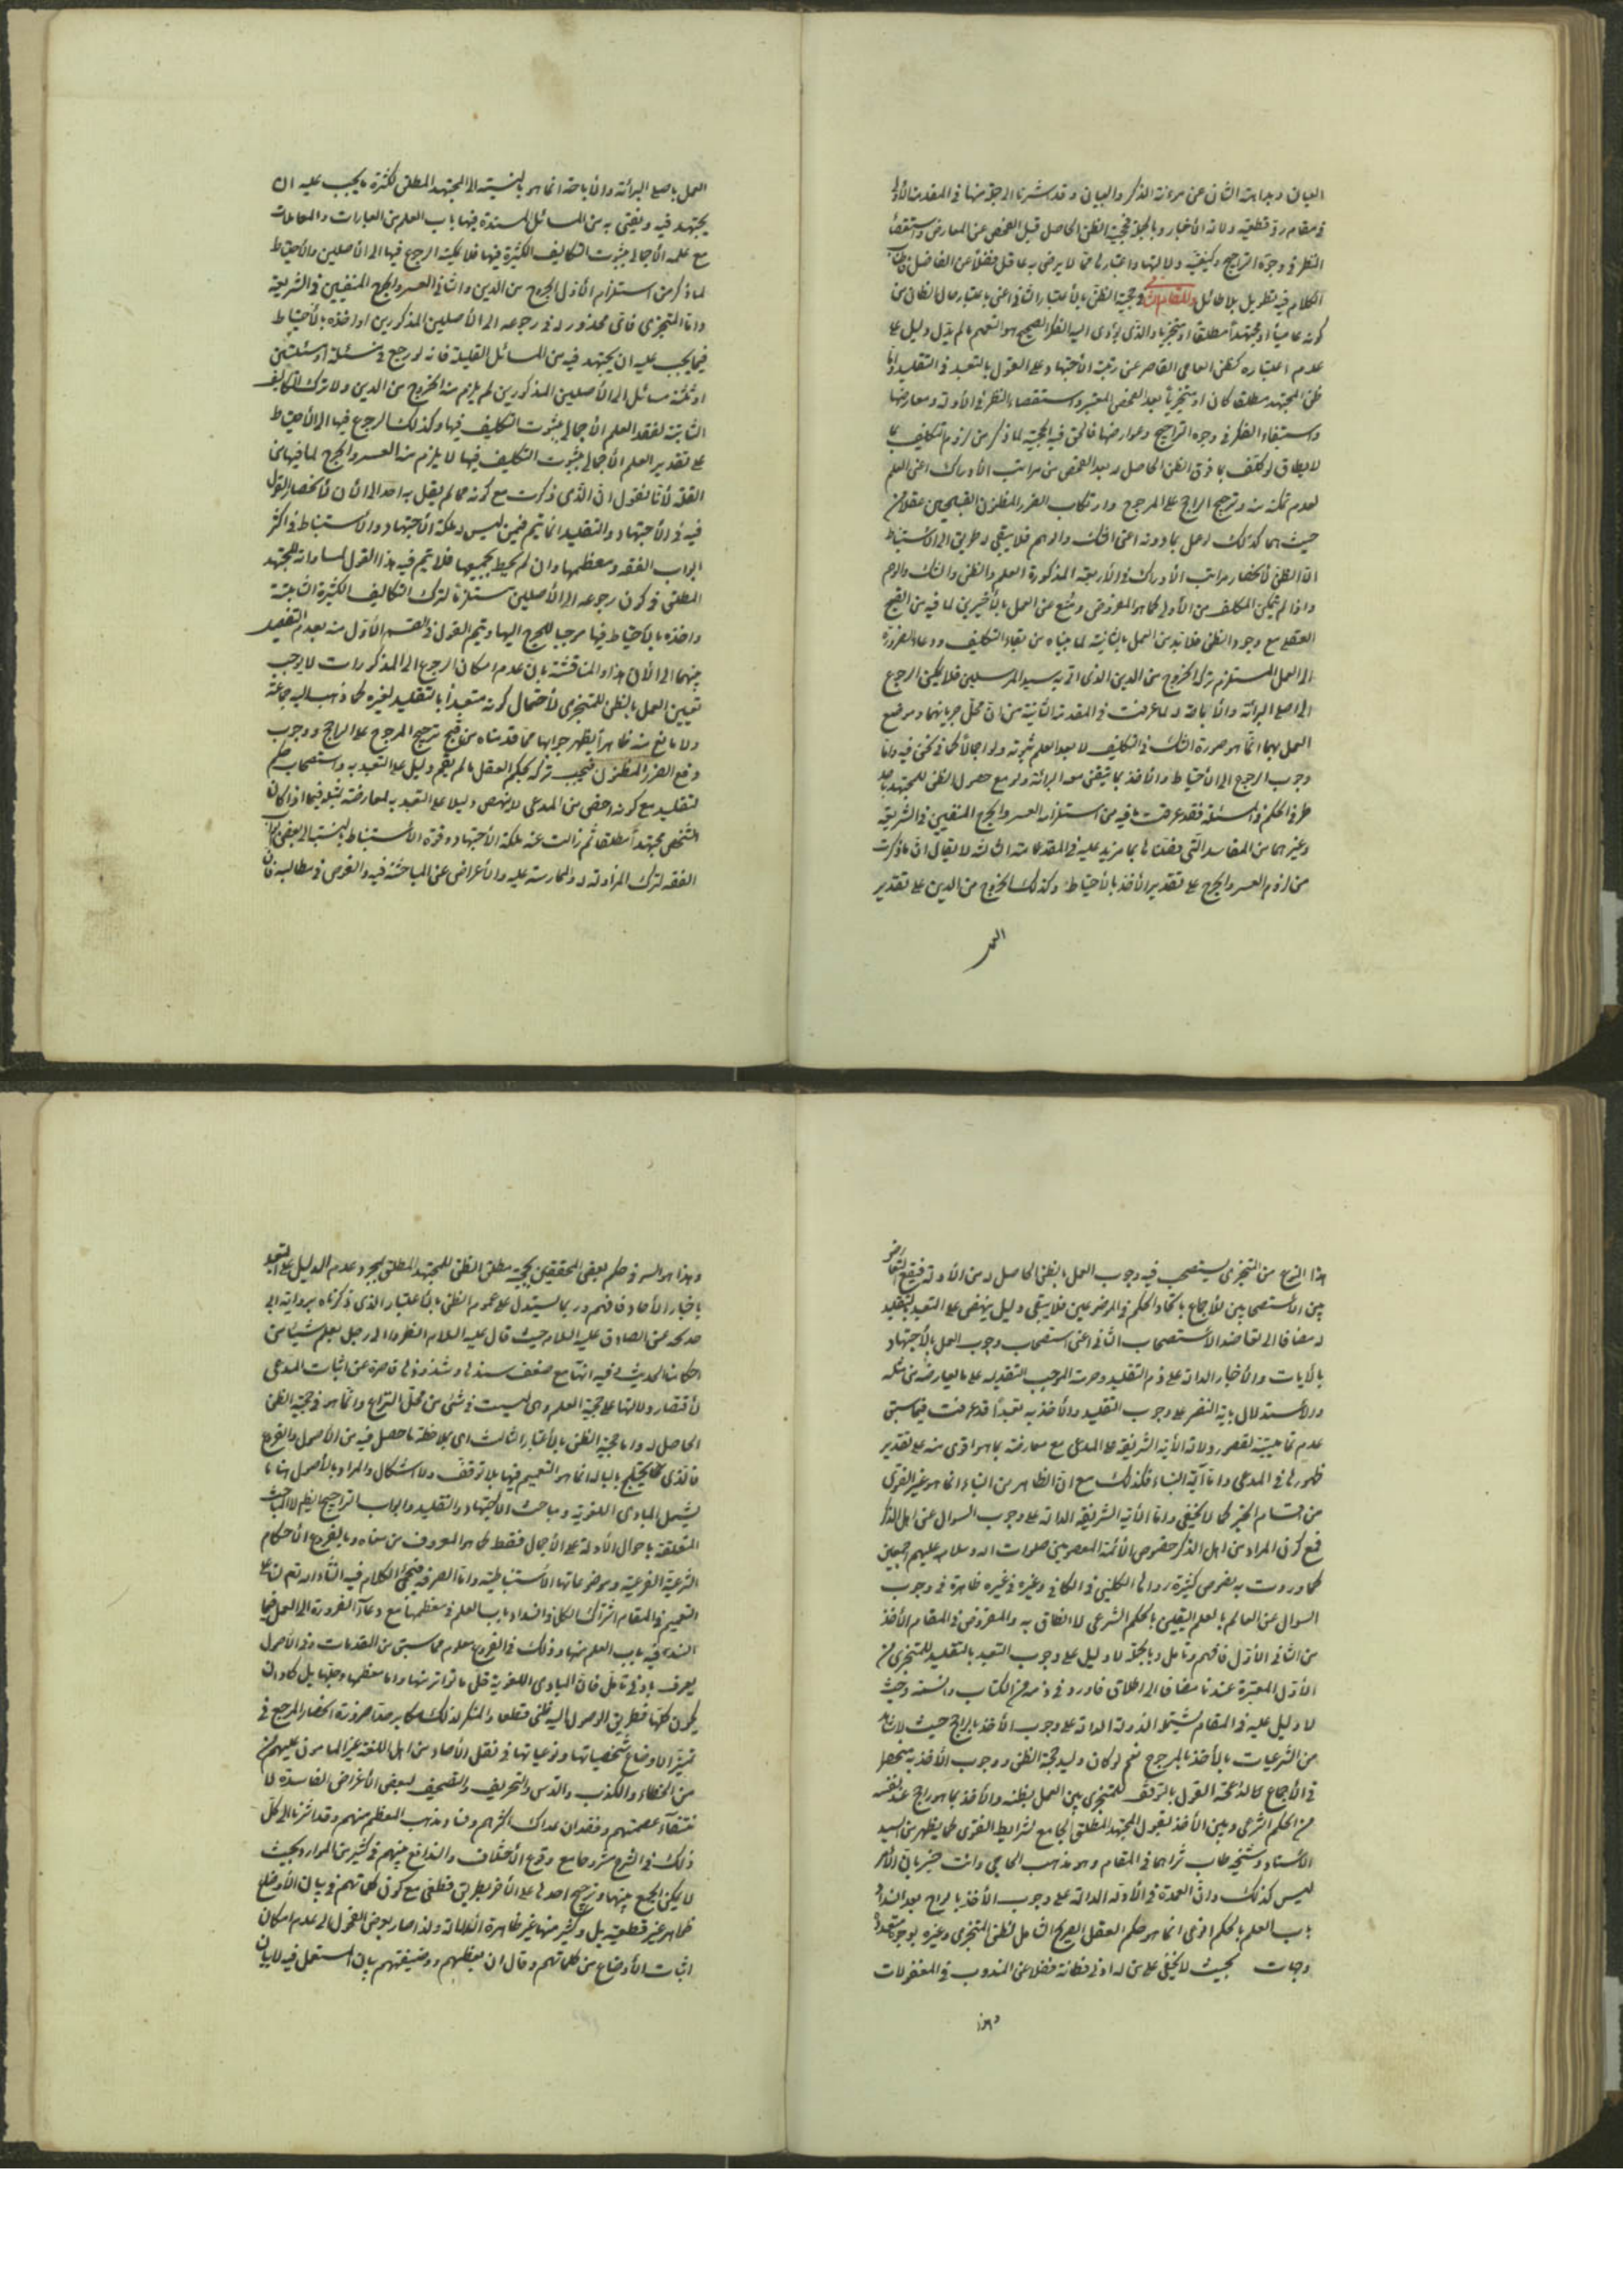 العيان وبداهة الشان عن مرءنة الذكر والبيان وقد اشرنا الى جوّ منها في المقدمة الأولى
في مقام رد قطعية دلالة الأخبار وبالجملة فحجية الظن الحاصل قبل الفحص عن المعارض واستقصاء
النظر في وجوه التراجيح وكيفية دلالتها واعتبارها مما لا يرضى به عاقل فضلا عن الفاضل
الكلام فيه تطويل بلا طائل والمقام الثاني في حجية الظن بالأعتبار الثاني اعنى باعتبار حال الظان من
كونه عاميا او مجتهدا مطلقا او متجزيا والذي يؤدى اليه الفكر الصحيح هو التعميم ما لم يدل دليل على
عدم اعتباره كظن العامى القاصر عن رتبة الأجتهاد وعلى القول بالتعبد في التقليد واما
ظن المجتهد مطلقا كان او متجزيا بعد الفحص المعتبر واستقصاء النظر في الأدلة ومعارضها
واستيفاء الفكر في وجوه التراجيح وعوارضها فالحق فيه الحجية لما ذكر من لزوم تكليف بما
لا يطاق لو كلف بما فوق الظن الحاصل له بعد الفحص من مراتب الأدراك اعنى العلم
لعدم تمكنه منه وترجيح الراجح على المرجوح وارتكاب الضرر المظنون القبيحين عقلا من
حيث هما كذلك لو عمل بما دونه اعنى الشك والوهم فلا يبقى له طريق الى الأستنباط
الا الظن لأنحصار مراتب الأدراك في الأربعة المذكورة العلم والظن والشك والوهم
واذا لم يتمكن المكلف من الأولى كما هو المفروض ومنع من العمل بالأخيرين لما فيه من القبح
العقلى مع وجود الظن فلا بد من العمل بالثانية لما بيناه من بقاء التكليف ودعاء الضرورة
الى العمل المستلزم تركه الخروج من الدين الذي اتى به سيد المرسلين فلا يمكن الرجوع
الى اصلى البرائة والأباحة لما عرفت في المقدمة الثانية من ان محل جريانهما وموضع
العمل بهما انما هو صورة الشك في التكليف لا بعد العلم بثبوته ولو اجمالا كما في نحن فيه واما
وجوب الرجوع الى الأحتياط والأخذ بما يتيقن معه البرائة ولو مع حصول الظن للمجتهد باحد
طرفى الحكم في المسئلة فقد عرفت ما فيه من استلزام العسر والحرج المنفيين في الشريعة
وغيرهما من المفاسد التى فصلناها بما مزيد عليه في المقدمة الثالثة لا يقال ان ما ذكرت
من لزوم العسر والحرج على تقدير الأخذ بالأحتياط وكذلك الخروج من الدين على تقدير
العمل
العمل باصلى البرائة والأباحة انما هو بالنسبة الى المجتهد المطلق لكثرة ما يجب عليه ان
يجتهد فيه ويفتى به من المسائل المنسدة فيها باب العلم من العبادات والمعاملات
مع علمه الأجمالى بثبوت التكاليف الكثيرة فيها فلا يمكنه الرجوع فيها الى الأصلين والأحتياط
لما ذكر من استلزام الأول الخروج من الدين والثاني العسر والحرج المنفيين في الشريعة
واما المتجزى فاى محذور له في رجوعه الى الأصلين المذكورين او اخذه بالأحتياط
فيما يجب عليه ان يجتهد فيه من المسائل القليلة فانه لو رجع في مسئلة او مسئلتين
او ثلثة مسائل الى الأصلين المذكورين لم يلزم منه الخروج من الدين ولا ترك التكاليف
الثابتة لفقد العلم الأجمالى بثبوت التكليف فيها وكذلك الرجوع فيها الى الأحتياط
على تقدير العلم الأجمالى بثبوت التكليف فيها لا يلزم منه العسر والحرج لما فيها من
القلة لأنا نقول ان الذى ذكرت مع كونه مما لم يقل به احد الى الأن لأنحصار القول
فيه في الأجتهاد والتقليد انما يتم فيمن ليس له ملكة الأجتهاد والأستنباط في اكثر
ابواب الفقه ومعظمها وان لم يحيط بجميعها فلا يتم فيه هذا القول لمساواته للمجتهد
المطلق في كون رجوعه الى الأصلين مستلزما لترك التكاليف الكثيرة الثابتة
واخذه بالأحتياط فيها موجبا للحرج اليها ويتم القول في القسم الأول منه بعدم التفصيل
بينهما الى الأن هذا والمناقشة بان عدم امكان الرجوع الى المذكورات لا يوجب
تعيين العمل بالظن للمتجزى لأحتمال كونه متعبدا بالتقليد لغيره كما ذهب اليه جماعة
ولا مانع منه ظاهرا يظهر جوابها مما قدمناه من قبح ترجيح المرجوح على الراجح ووجوب
دفع الضرر المظنون فيجب تركه بحكم العقل ما لم يقم دليل على التعبد به واستصحاب حكم
التقليد مع كونه اخص من المدعى لا ينهض دليلا على التعبد به لمعارضته بمثله فيما اذا كان
الشخص مجتهدا مطلقا ثم زالت عنه ملكة الأجتهاد وقوة الأستنباط بالنسبة الى بعض
الفقه لترك المزاولة له والممارسة عليه والأعراض عن المباحثة فيه والغوص في مطالبه فان
هذا النوع من المتجزى يستصحب فيه وجوب العمل بالظن الحاصل له من الأدلة فيقع التعارض
بين الأستصحابين للأجماع باتحاد الحكم في الموضوعين فلا يبقى دليل ينهض على التعبد بالتقليد
له مضافا الى تعاضد الأستصحاب الثاني اعنى استصحاب وجوب العمل بالأجتهاد
بالأيات والأخبار الدالة على ذم التقليد وحرمته الموجب التقديمه على ما يعارضه من مثله
والأستدلال باية النفر على وجوب التقليد والأخذ به تعبدا قد عرفت فيما سبق
عدم تماميته لقصور دلالة الأية الشريفة على المدعى مع معارضته بما هو اقوى منه على تقدير
ظهورها في المدعى واما آية النباء فكذلك مع ان الظاهر من النباء انما هو غير الفتوى
من اقسام الخبر كما لا يخفى واما الأية الشريفة الدالة على وجوب السوال عن اهل الذكر
فمع كون المراد من اهل الذكر خصوص الأئمة المعصومين صلوات الله وسلامه عليهم اجمعين
كما وردت به نصوص كثيرة رواها الكلينى في الكافي وغيره في غيره ظاهرة في وجوب
السوال عن العالم بالعلم اليقينى بالحكم الشرعى لا الظان به والمفروض في المقام الأخذ
من الثاني الأول فافهم وتامل وبالجملة لا دليل على وجوب التعبد بالتقليد للمتجزى من
الأدلة المعتبرة عندنا مضافا الى اطلاق ما ورد في ذمه من الكتاب والسنة وحيث
لا دليل عليه في المقام يشمله الأدلة الدالة على وجوب الأخذ بالراجح حيث لا
من الشرعيات بالأخذ بالمرجوح نعم لو كان دليل حجية الظن ووجوب الأخذ به منحصرا
في الأجماع كما لزمته القول بالتوقف للمتجزى بين العمل بظنه والأخذ بما هو راجح عند نفسه
من الحكم الشرعى وبين الأخذ بقول المجتهد المطلق الجامع لشرايط الفتوى كما يظهر من السيد
الأستاد وشيخه طاب ثراهما في المقام وهو مذهب الحاجبى وانت خبير بان الأمر
ليس كذلك وان العمدة في الأدلة الدالة على وجوب الأخذ بالراجح بعد انسداد
باب العلم بالحكم الواقعى انما هو حكم العقل الصريح الشامل لظن المتجزى وغيره بوجوه متعددة
وجهات بحيث لا يخفى على من له ادنى فطانة فضلا عن المندوب في المعقولات
وهذا
وهذا هو السر في حكم بعض المحققين بحجية مطلق الظن للمجتهد المطلق بمجرد عدم الدليل على التعبد
باخبار الأحاد فافهم وربما يستدل على عموم الظن بالأعتبار الذى ذكرناه برواية ابى
خديجة عن الصادق عليه السلام حيث قال عليه السلام انظروا الى رجل يعلم شيئا من
احكامنا الحديث وفيه انها مع ضعف سندها وشذوذها قاصرة عن اثبات المدعى
لأقتصار دلالتها على حجية العلم وهى ليست في شئ من محل النزاع وانما هو في حجية الظن
الحاصل له واما حجية الظن بالأعتبار الثالث اى بملاحظة ما حصل فيه من الأصول والفروع
فالذى يختلج بالبال انما هو التعميم فيها بلا توقف ولا اشكال والمراد بالأصول هنا ما
يشمل المبادى اللغوية ومباحث الأجتهاد والتقليد وابواب التراجيح ايضا لا المباحث
المتعلقة باحوال الأدلة على الأجمال فقط كما هو المعروف من معناه وبالفروع الأحكام
الشرعية الفرعية وموضوعاتها الأستنباطية واما الصرفة فيجئ الكلام فيه انشاء الله تعم لنا على
التعميم في المقام اشتراك الكل في انسداد باب العلم في معظمها مع دعاء الضرورة الى العمل فيما
انسد فيه باب العلم منها وذلك في الفروع معلوم مما سبق من المقدمات وفي الأصول
يعرف بادنى تامل فان المبادى اللغوية قل ما تواتر منها واما معظمها وجلها بل كاد ان
يكون كلها فطريق الوصول اليه ظنى قطعا والمنكر لذلك مكابر صفا ضرورة انحصار المرجع في
تميز الأوضاع شخصياتها ونوعياتها في نقل الأحاد من اهل اللغة غير المامون عليهم من
من الخطاء والكذب والدس والتحريف والتصحيف لبعض الأغراض الفاسدة لا
نتفاء عصمتهم وفقدان عدالة اكثرهم وفساد مذهب المعظم منهم وقد اشرنا الى كل
ذلك في الشرح مشروحا مع وقوع الأختلاف والتدافع بينهم في كثير من الموارد بحيث
لا يمكن الجمع بينها وترجيح احدها على الأخر بطريق قطعى مع كون كلماتهم في بيان الأوضاع
ظاهر غير قطعية بل وكثير منها غير ظاهرة الدلالة ولذا صار بعض الفحول الى عدم امكان
اثبات الأوضاع من كلماتهم وقال ان وظيفتهم بيان المستعمل فيه لا بيان